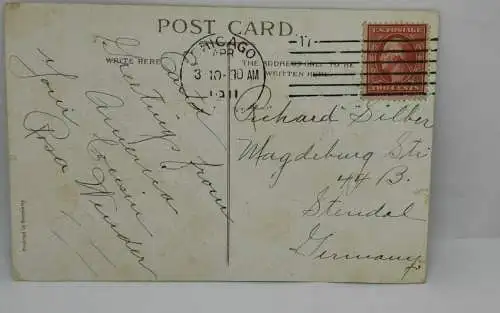 POST CARD.
CHICAGO
APR
3 10-30 AM
1911
17
U.S. POSTAGE
TWO CENTS
WRITE HERE
THE ADDRESS ONLY TO BE
WRITTEN HERE
Good
Greetings from
America
Your Cousin
Rosa Winder
Richard Silber
Magdeburg Str
44 B.
Stendal
Germany.